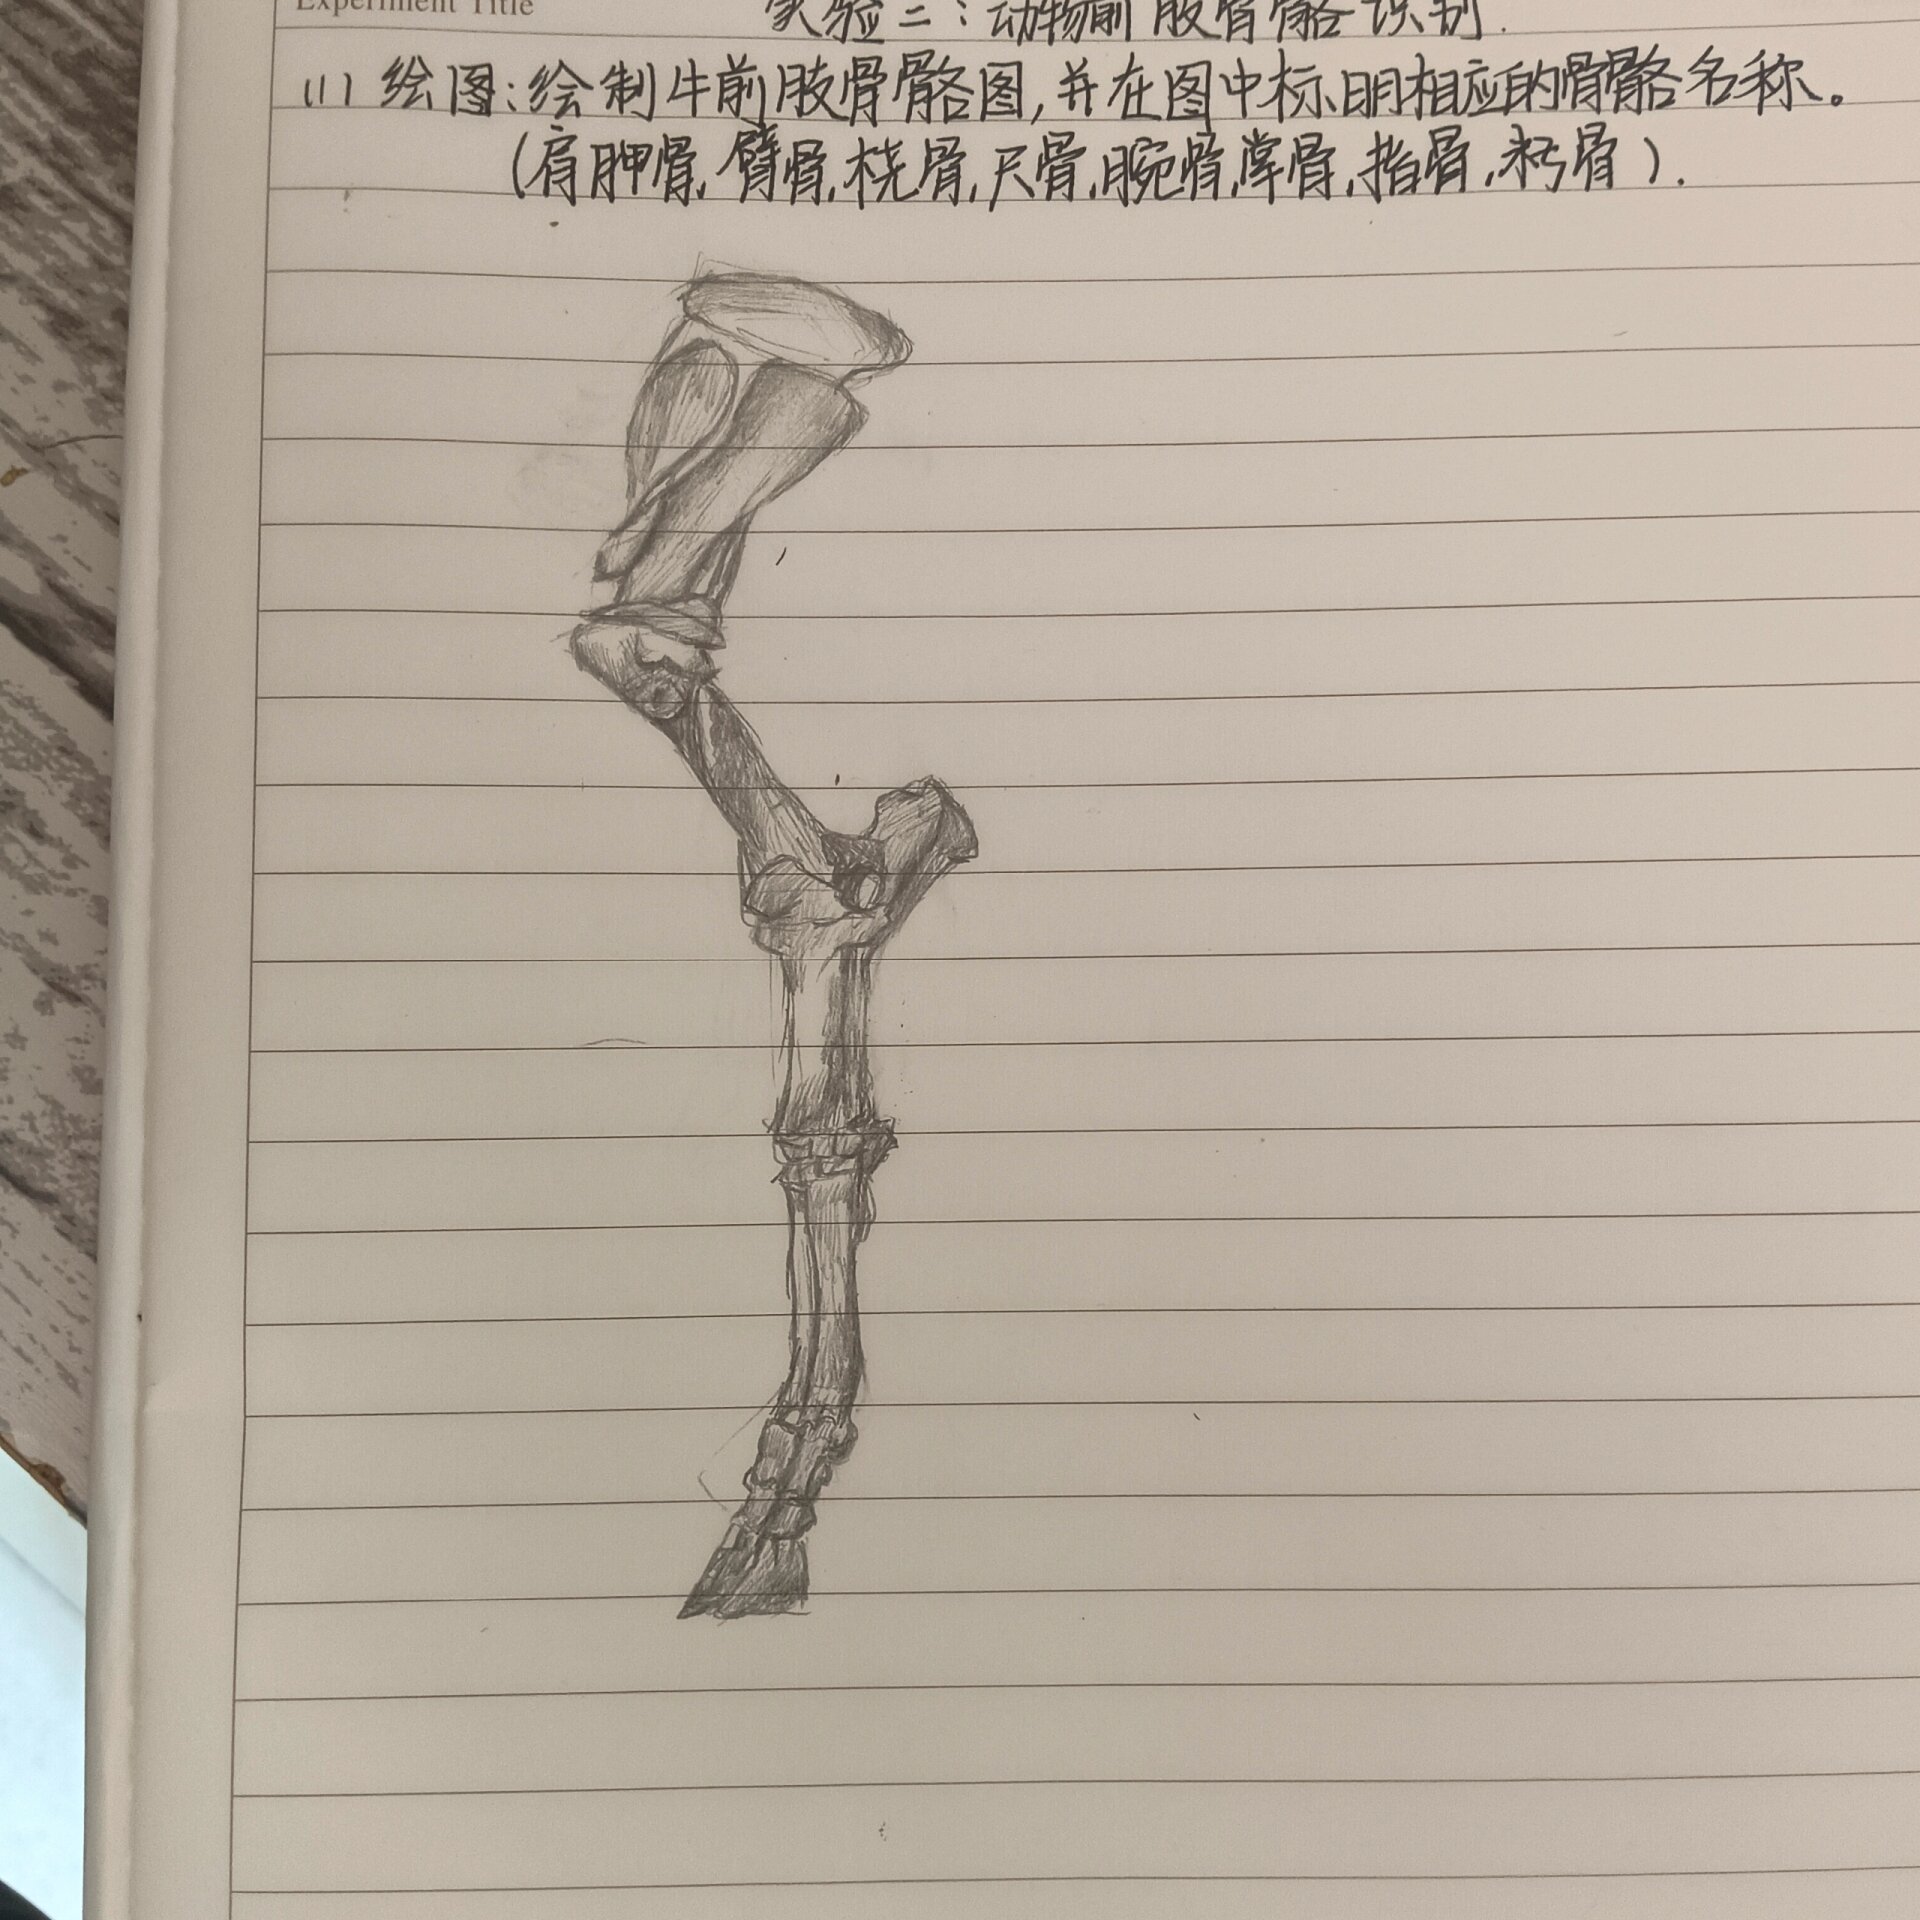 Experiment Title
实验二：动物前肢骨骼识别.
(1) 绘图：绘制牛前肢骨骼图，并在图中标明相应的骨骼名称。
(肩胛骨，臂骨，桡骨，尺骨，腕骨，掌骨，指骨，籽骨).